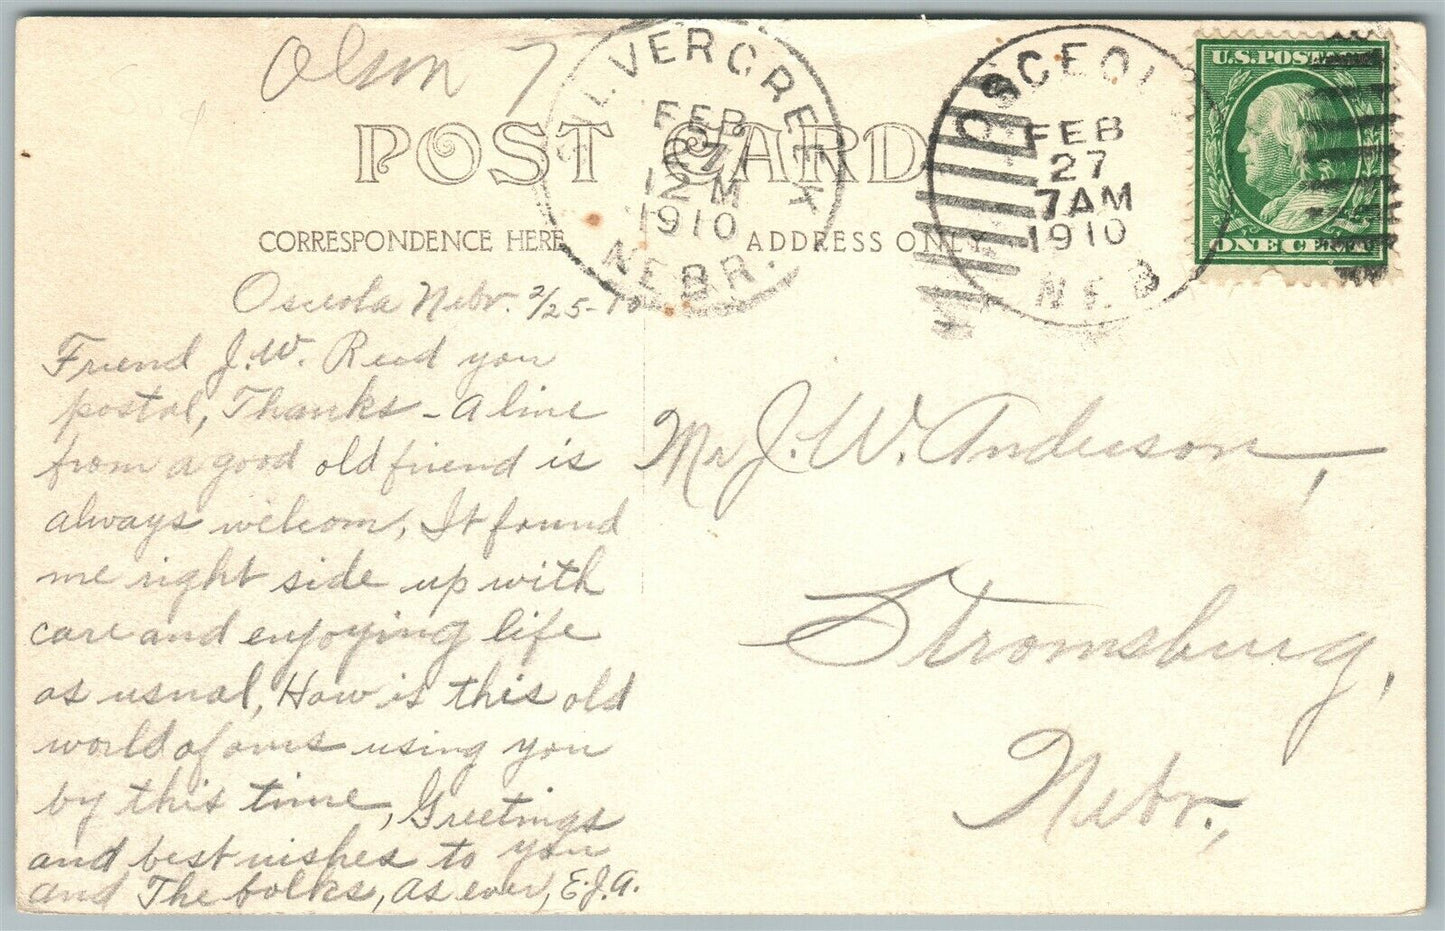 Olson 7
SILVERCREEK
FEB
27
12 M
1910
NEBR.
OSCEOLA
FEB
27
7 AM
1910
NEB
U.S. POSTAGE
ONE CENT
POST CARD
CORRESPONDENCE HERE
ADDRESS ONLY
Osceola Nebr. 2/25-10
Friend J.W. Read you
postal, Thanks - A line
from a good old friend is
always welcom, It found
me right side up with
care and enjoying life
as usual, How is this old
world of ours using you
by this time, Greetings
and best wishes to you
and The folks, as ever, E.J.A.
Mr J. W. Anderson,
Stromsburg,
Nebr.,